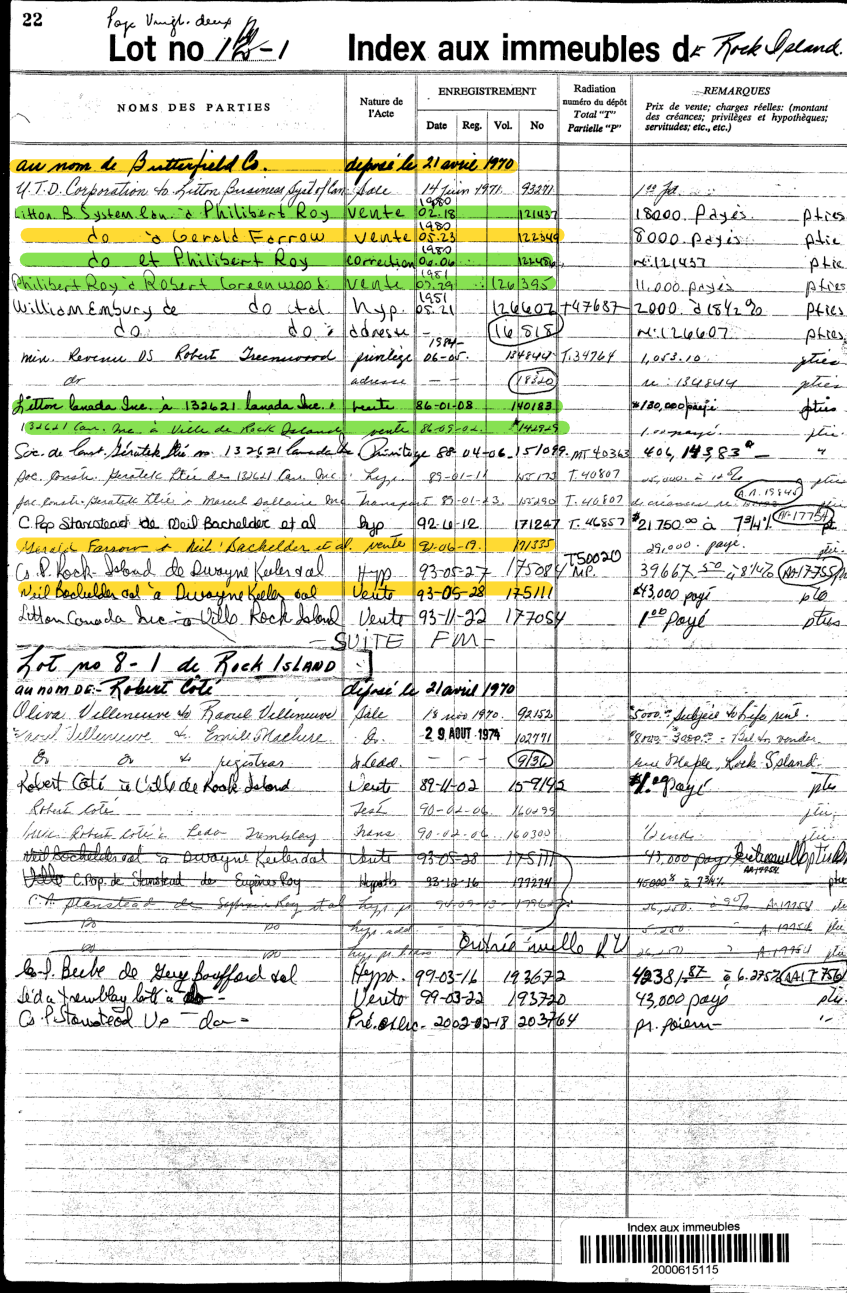 22 Page Vingt-deux
Lot no Index aux immeubles de Rock Island.
NOMS DES PARTIES Nature de l'Acte ENREGISTREMENT Date Reg. Vol. No Radiation numéro du dépôt Total "T" Partielle "P" REMARQUES Prix de vente; charges réelles: (montant des créances; privilèges et hypothèques; servitudes; etc., etc.)
au nom de Butterfield Co. déposé le 21 avril 1970
U.T.D. Corporation to Litton Business Syst of Can Sale 14 juin 1971 93271
Litton B. System Can. à Philibert Roy vente 1980 02.18 121437 18000. Payés pties
do à Gerald Farrow vente 1980 05.23 122349 8000 payés ptie
do et Philibert Roy correction 1980 06.06 re: 121437 ptie
Philibert Roy à Robert Greenwood vente 1981 07.29 126395 11,000. payés pties
William Embury de do et al. hyp. 1981 126607 +47687 2000. à 18½% pties
do do adresse - 16818 re: 126607 pties
min. Revenu DS Robert Greenwood privilège 1984 06-05. 134844 T.34764 1,053.10 pties
do adresse - - 18320 re: 134844 pties
Litton Canada Inc. à 132621 Canada Inc. vente 86-01-08 140183 $130,000 payé pties
132621 Can. Inc. à Ville de Rock Island vente 86-09-02 142929 1.00 payé. ptie.
Soc. de Const. Gératek ltée vs. 132621 Canada Inc Privilège 88-04-06 151099 MT 40363 "
Soc. Constr. Geratek ltée de 132621 Can. Inc hyp. 89-01-11 T. 40807 ptie
Soc. Constr. Geratek ltée à Marcel Dallaire Inc Transport 89-01-23 T. 40807 A.A. 19845 ptie
C. Pop Stanstead de Neil Bachelder et al hyp 92-6-12 171247 T. 46857 $21750.00 à 7¾% AA-17754
Gerald Farrow à Neil Bachelder et al. vente 92-06-19. 171335 29,000. payé. ptie.
Cs. P. Rock-Island de Dwayne Keeler & al Hyp 93-05-27 175084 T50020 MP. 39667.50 à 8¼% AA-17755
Neil Bachelder & al à Dwayne Keeler & al Vente 93-05-28 175111 $43,000 payé ptie
Litton Canada Inc à Ville Rock Island Vente 93-11-22 177054 1.00 payé pties
- SUITE FM -
Lot no 8-1 de Rock Island
au nom de:- Robert Côté déposé le 21 avril 1970
Oliva Villeneuve to Raoul Villeneuve Sale 18 nov 1970. 92152 $5000.00 Subject to life rent.
Raoul Villeneuve to Emile Do. 29 AOUT 1974 102771 Bal to vendor
Do Do to registrar - - - 9136 rue Maple, Rock Island.
Robert Côté à Ville de Rock Island Vente 89-11-02 159142 $1.00 payé ptie
Robert Côté Test 90-02-06. 160299 ptie
Robert Côté à Leda Tremblay Trans 90-02-06 160300 ptie
Neil Bachelder & al à Dwayne Keeler & al Vente 93-05-28 175111 43,000 payé
Ville C. Pop. de Stanstead de Eugène Roy Hypoth 93-12-16 177274 45000$ à 7¾% AA 17754 ptie
C.P. Stanstead de Sylvain Roy et al hyp. 26,250. à 9% A-17754 ptie
Do Do hyp. add A-17754 ptie
Do Do 26,250 A-17754 ptie
Entrée nulle
Cs. P. Beebe de Guy Bouffard & al Hypo. 99-03-16 193672 42381.87 à 6.275% AA-17756
Léda Tremblay Côté à do - Vente 99-03-22 193720 43,000 payé ptie.
Cs. P. Stanstead Vs - do - Pré. exerc. 2002-02-18 203764 pr. paiem -
Index aux immeubles
2000615115